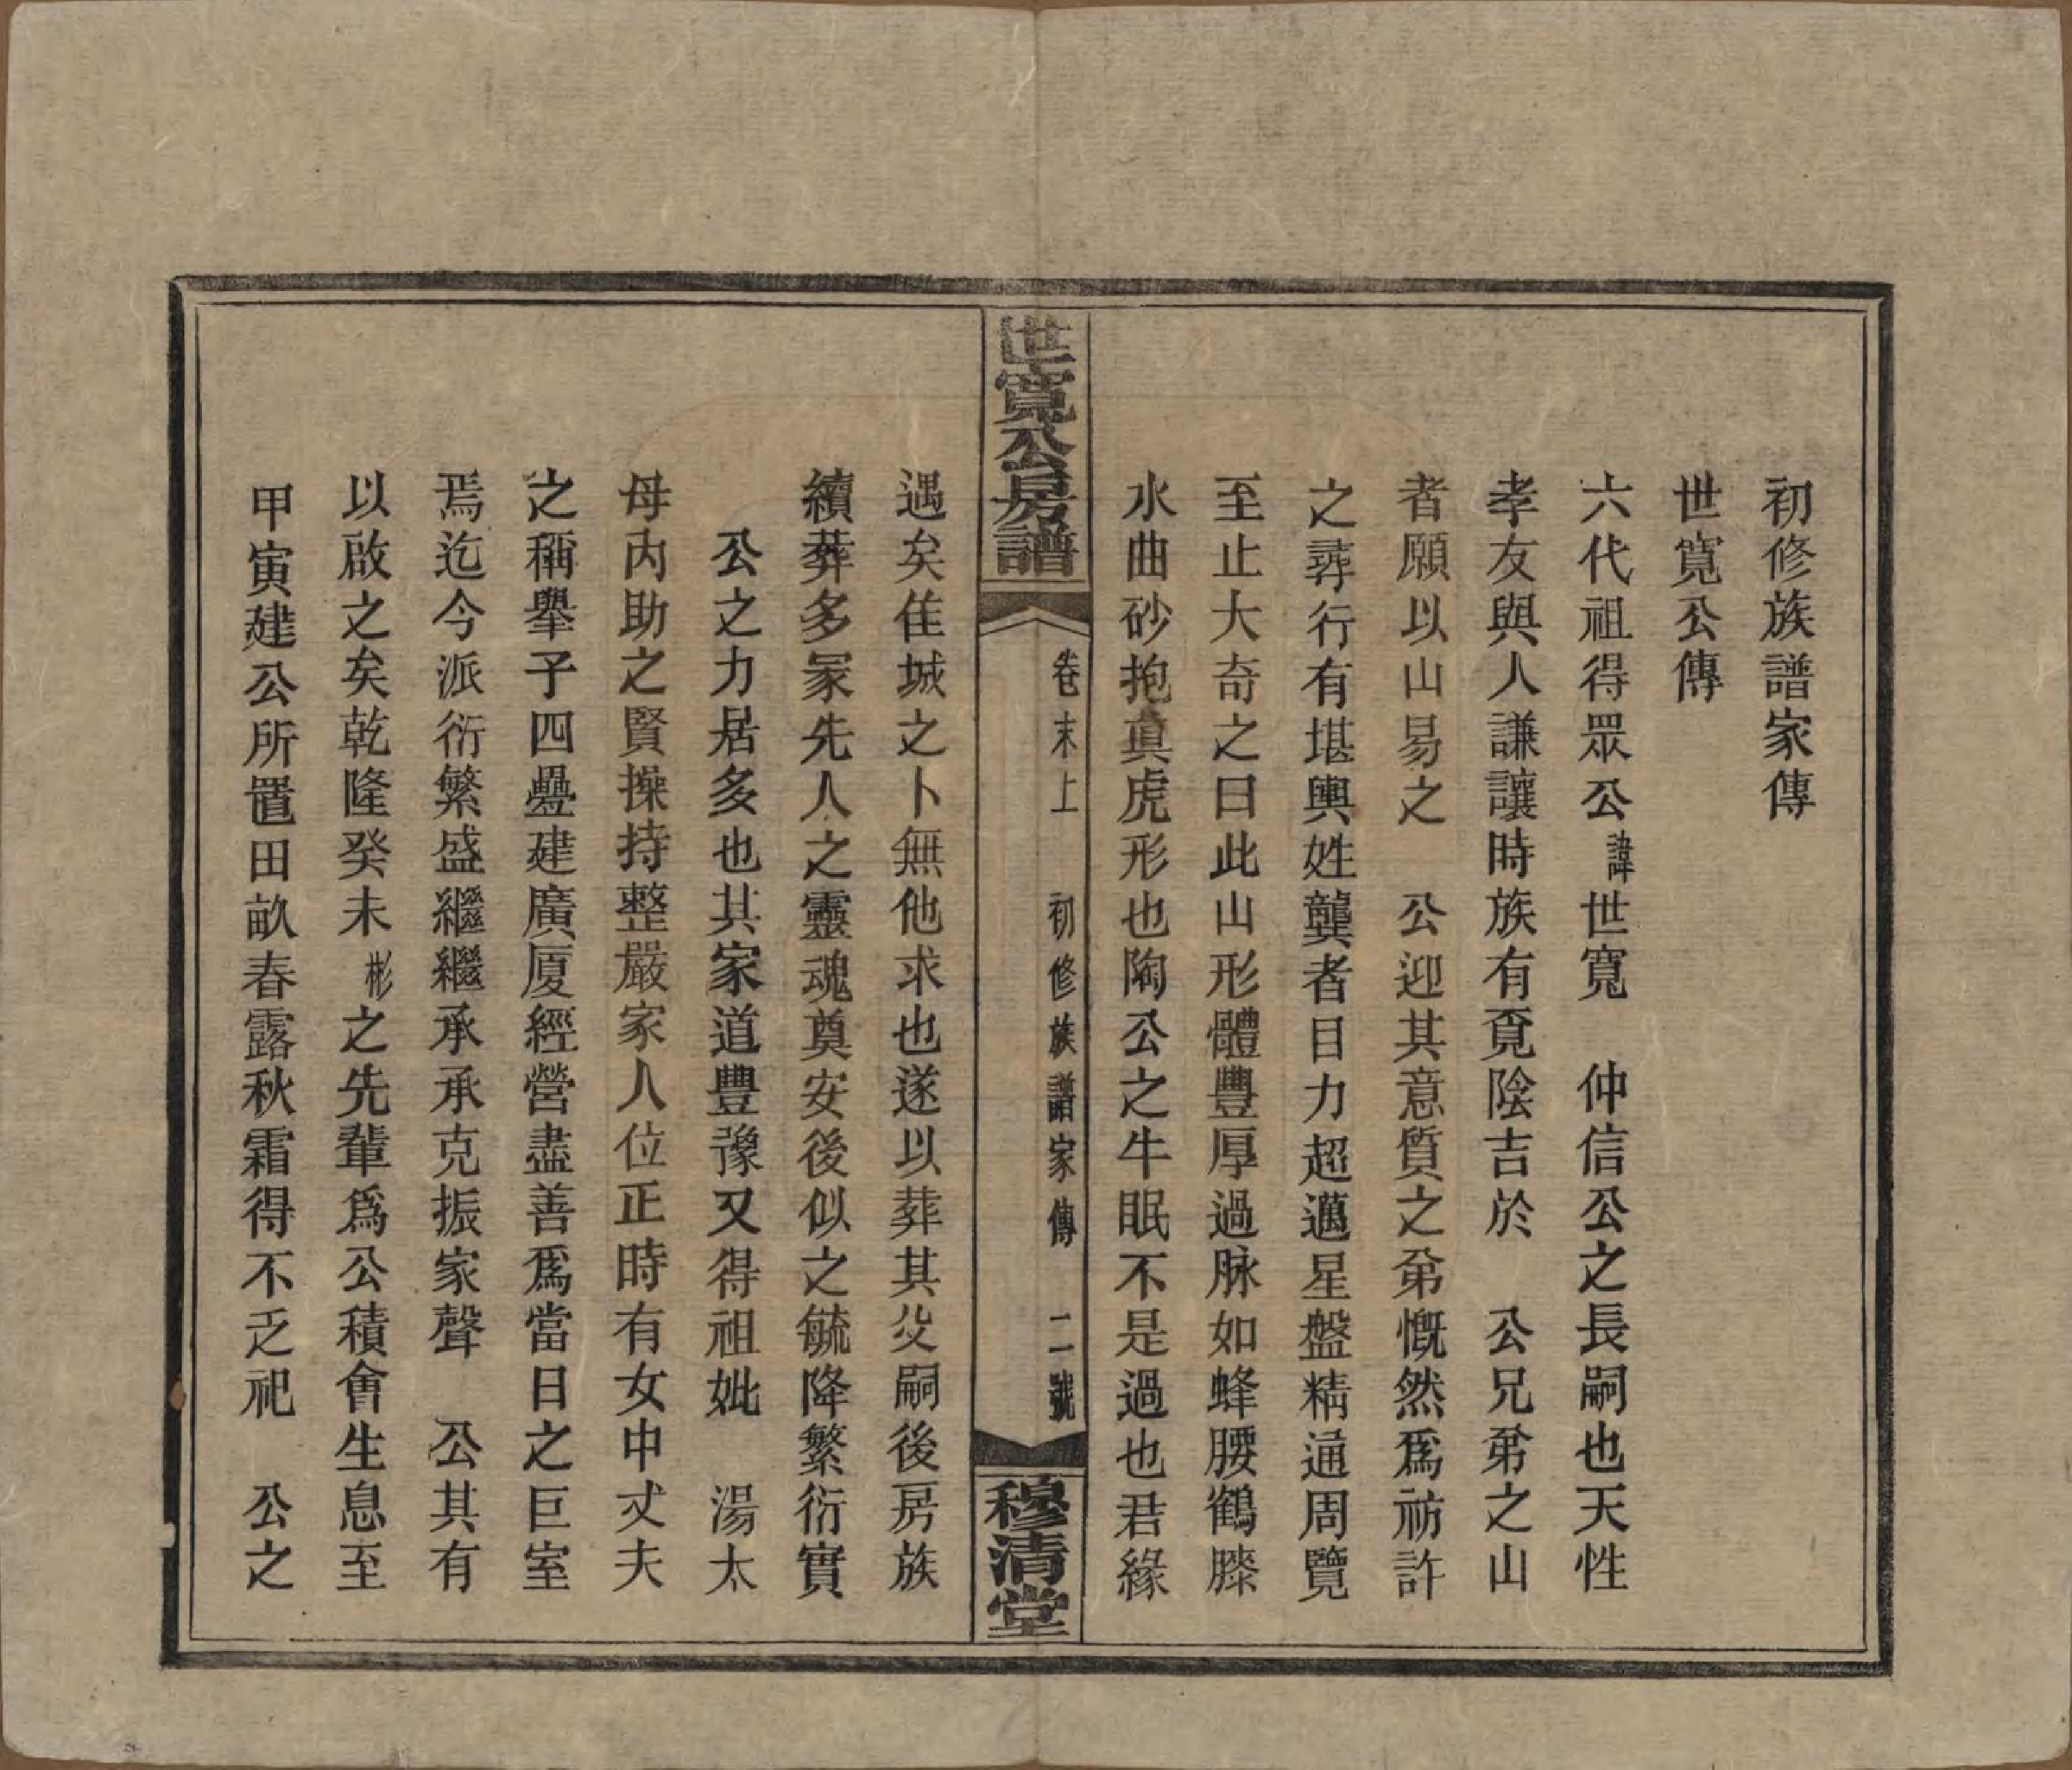 初修族譜家傳
世寬公傳
六代祖得眾公諱世寬　仲信公之長嗣也天性
孝友與人謙讓時族有覔陰吉於　公兄弟之山
者願以山易之　公迎其意質之弟慨然爲祊許
之尋行有堪輿姓龔者目力超邁星盤精通周覽
至止大奇之曰此山形體豐厚過脉如蜂腰鶴膝
水曲砂抱真虎形也陶公之牛眠不是過也君緣
世寬公房譜
卷末上　初修族譜家傳　二一號
穆清堂
遇矣佳城之卜無他求也遂以葬其父嗣後房族
續葬多冢先人之靈魂奠安後似之毓降繁衍實
公之力居多也其家道豐豫又得祖妣　湯太
母內助之賢操持整嚴家人位正時有女中丈夫
之稱舉子四疊建廣厦經營盡善爲當日之巨室
焉迄今派衍繁盛繼繼承承克振家聲　公其有
以啟之矣乾隆癸未彬之先輩爲公積會生息至
甲寅建公所置田畝春露秋霜得不乏祀　公之